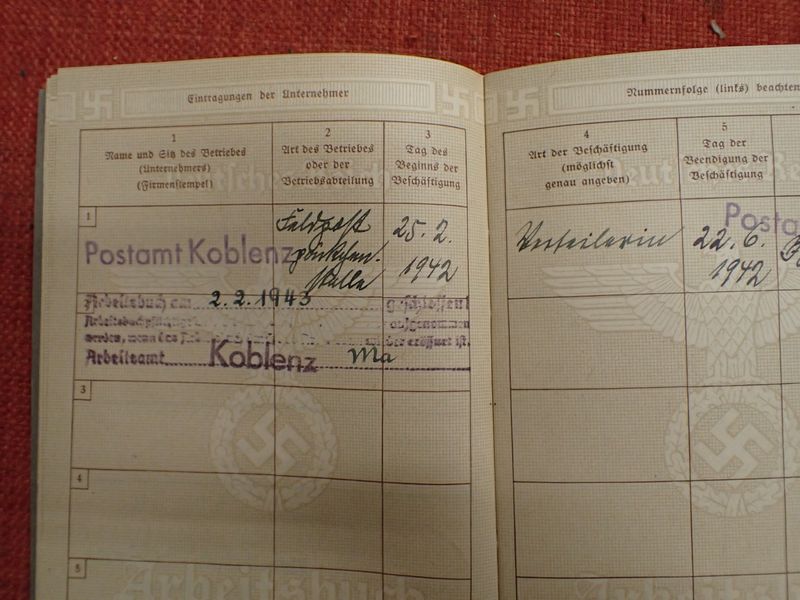 Eintragungen der Unternehmer
1
Name und Sitz des Betriebes
(Unternehmers)
(Firmenstempel)
2
Art des Betriebes
oder der
Betriebsabteilung
3
Tag des
Beginns der
Beschäftigung
1
Postamt Koblenz
Feldpost
päckchen-
stelle
25. 2.
1942
Arbeitsbuch am 2. 2. 1943 geschlossen
aufgenommen
werden, wenn das
der eröffnet ist.
Arbeitsamt Koblenz Ma
3
4
5
Arbeitsbuch
Nummernfolge (links) beachten
4
Art der Beschäftigung
(möglichst
genau angeben)
5
Tag der
Beendigung der
Beschäftigung
Verteilerin
22. 6.
1942
Posta